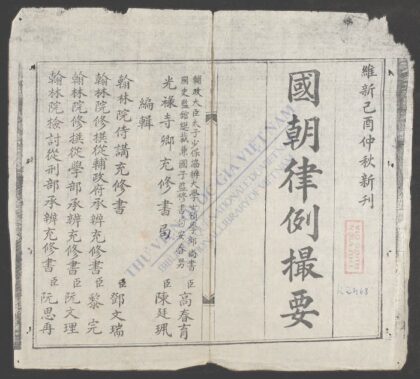 維新己酉仲秋新刊
國朝律例撮要
輔政大臣太子少保協辦大學士領學部尚書
國史館總裁兼國子監修書局安春男 臣 高春育
光祿寺卿充修書局 臣 陳廷珮
編輯
翰林院侍講充修書 臣 鄧文瑞
翰林院修撰從輔政府承辦充修書 臣 黎完
翰林院修撰從學部承辦充修書 臣 阮文理
翰林院檢討從刑部承辦充修書 臣 阮思再
THƯ VIỆN QUỐC GIA VIỆT NAM